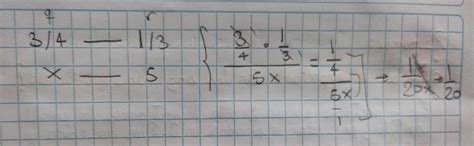 q r
3/4 — 1/3
x — 5
3/4 · 1/3 / 5x = 1/4 / 5x/1 → 1x/20x → 1/20